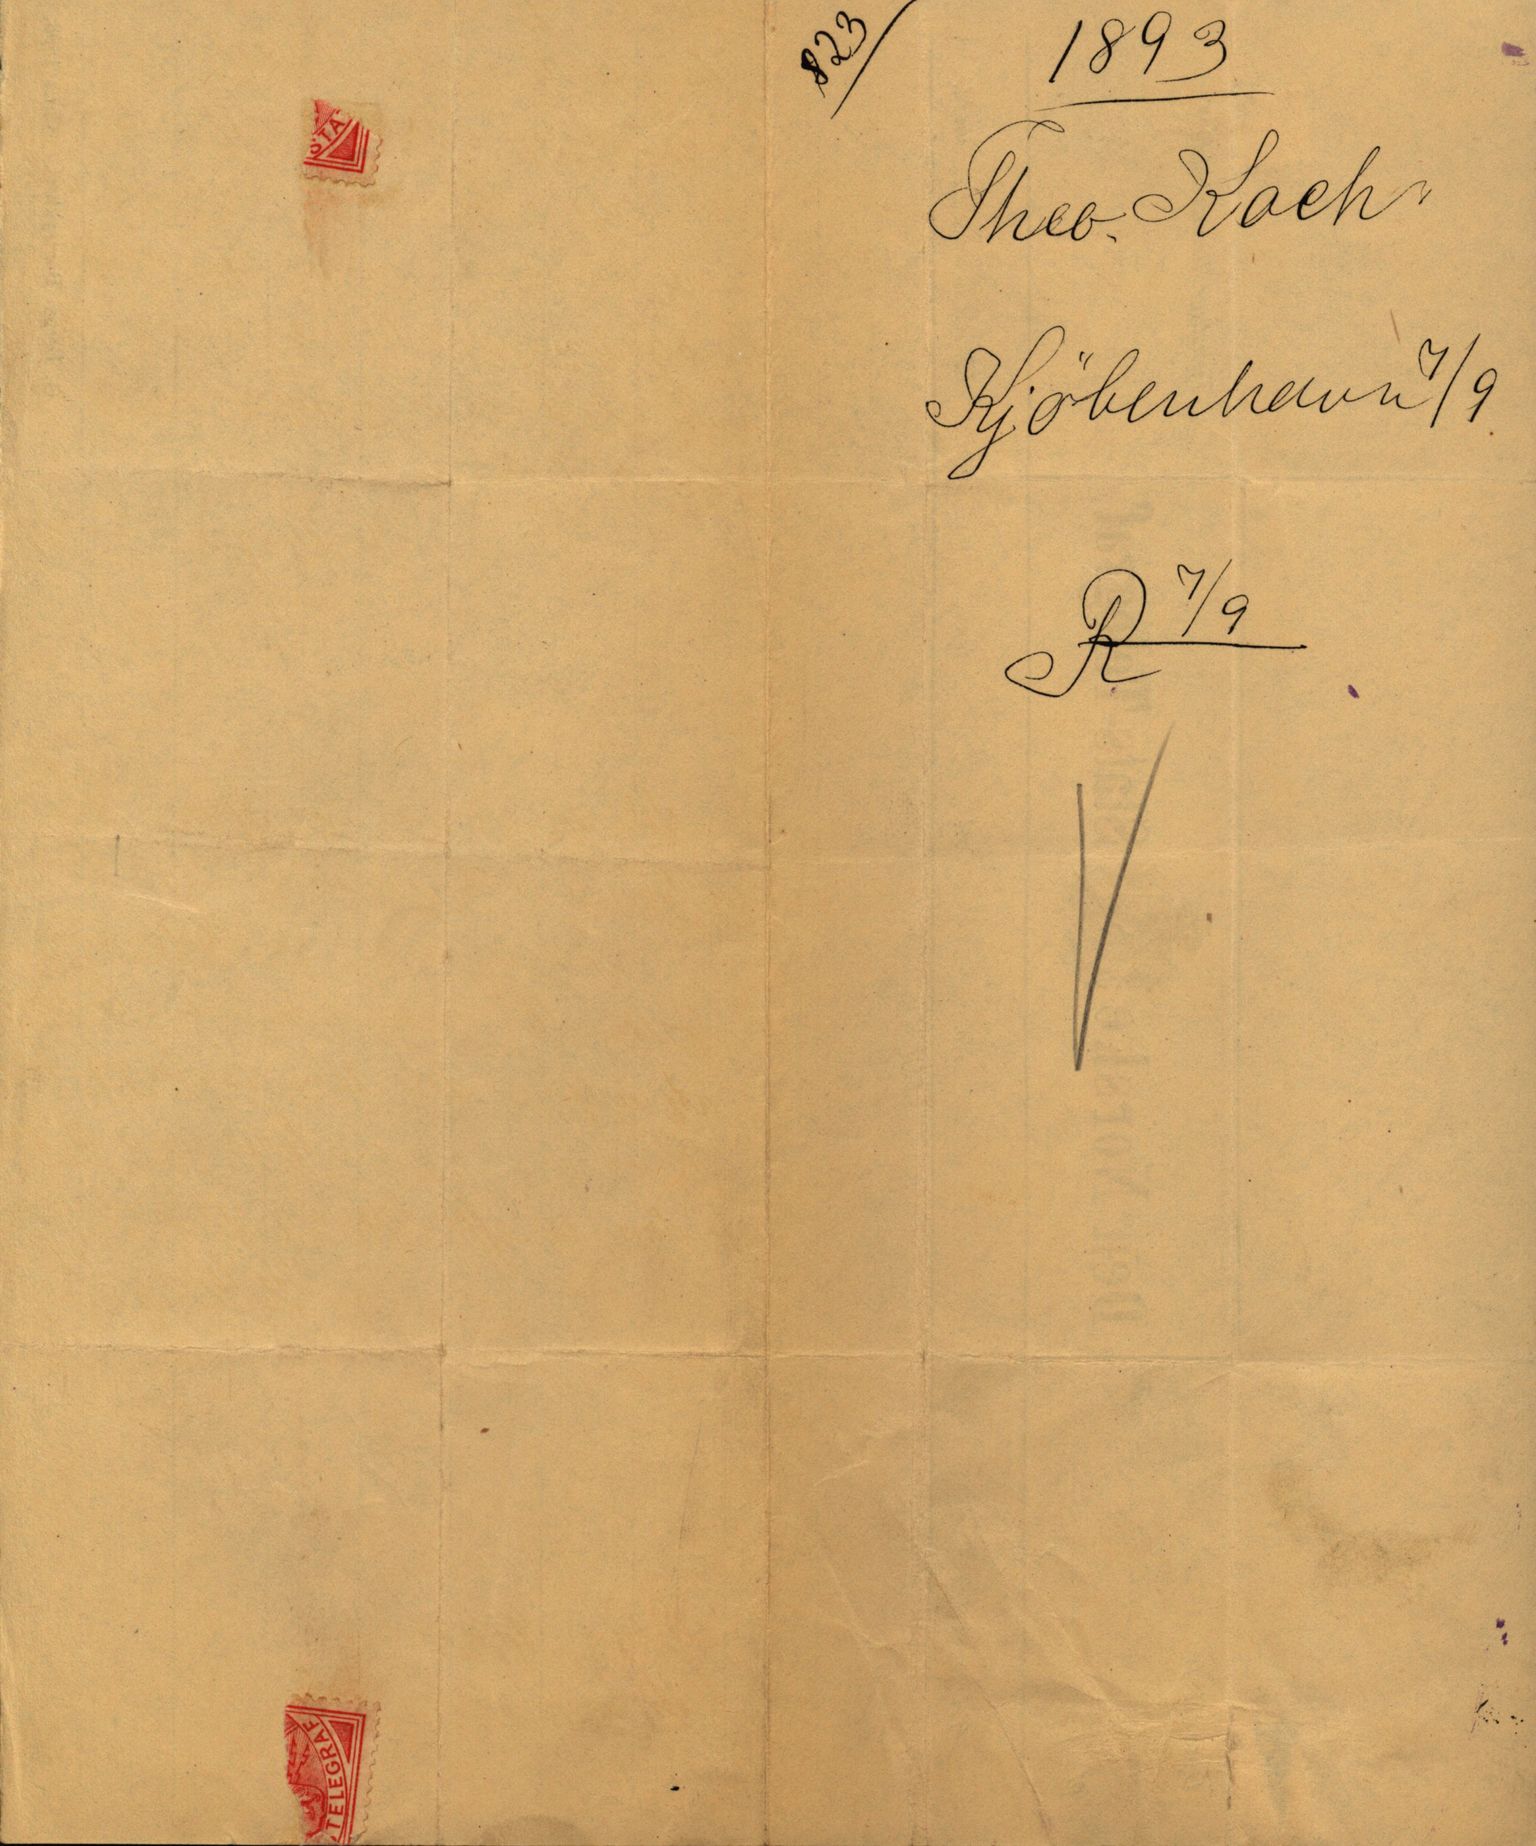 823
1893
Theo. Koch
Kjöbenhavn 7/9
R 7/9
STA
TELEGRAF